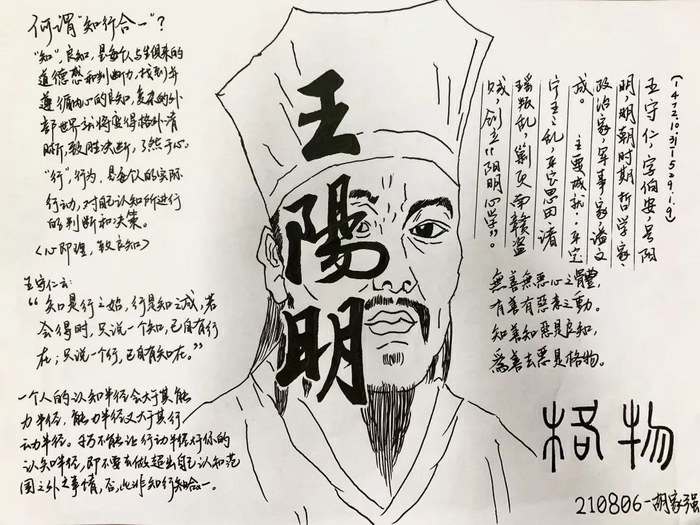 何谓“知行合一”？
“知”，良知，是每个人与生俱来的
道德感和判断力，找到并
遵循内心的良知，复杂的外
部世界就将变得格外清
晰，致胜决断，了然于心。
“行”，行为，是每个人的实际
行动，对自己认知所进行
的判断和决策。
〈心即理，致良知〉
王守仁云：
“知是行之始，行是知之成，若
会得时，只说一个知，已自有行
在；只说一个行，已自有知在。”
一个人的认知半径会大于其能
力半径，能力半径又大于其行
动半径。切不能让行动半径大于你的
认知半径，即不要去做超出自己认知范
围之外之事情，否，此非知行合一。
王陽明
(1472.10.31-1529.1.9)
王守仁，字伯安，号阳
明，明朝时期哲学家、
政治家，军事家，谥文
成。 主要成就：平定
宁王之乱，平定思田诸
瑶叛乱，剿灭南赣盗
贼，创立“阳明心学”。
無善無惡心之體，
有善有惡意之動。
知善知惡是良知，
爲善去惡是格物。
格物
210806-胡家强